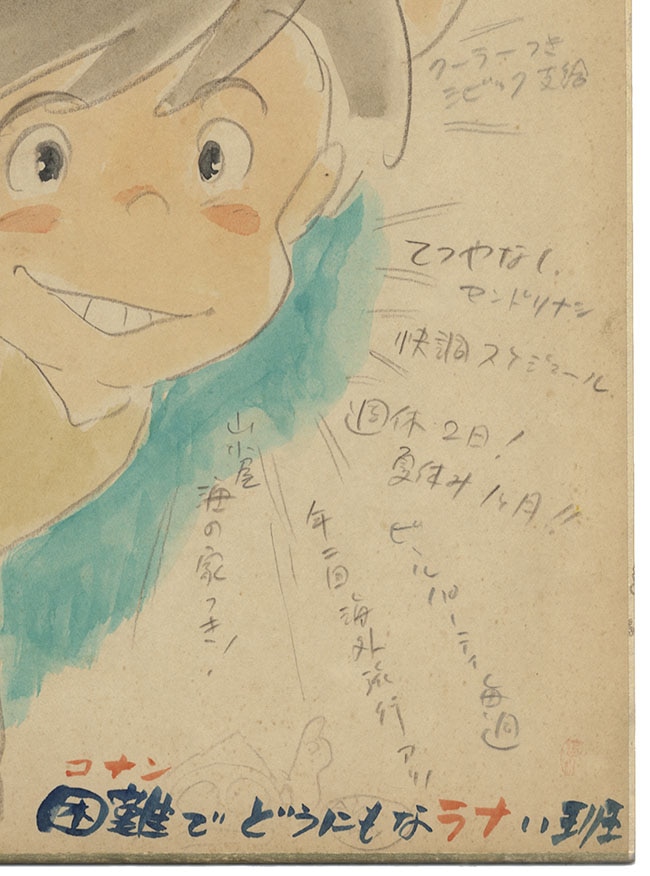 クーラーつき
シビック支給
てつやなし、
マンドリナシ
快調スケジュール
週休2日!
夏休み1ヶ月!!
ビールパーティ毎週
年二回海外旅行アリ
山小屋
海の家つき!
コナン
困難でどうにもなラナい班